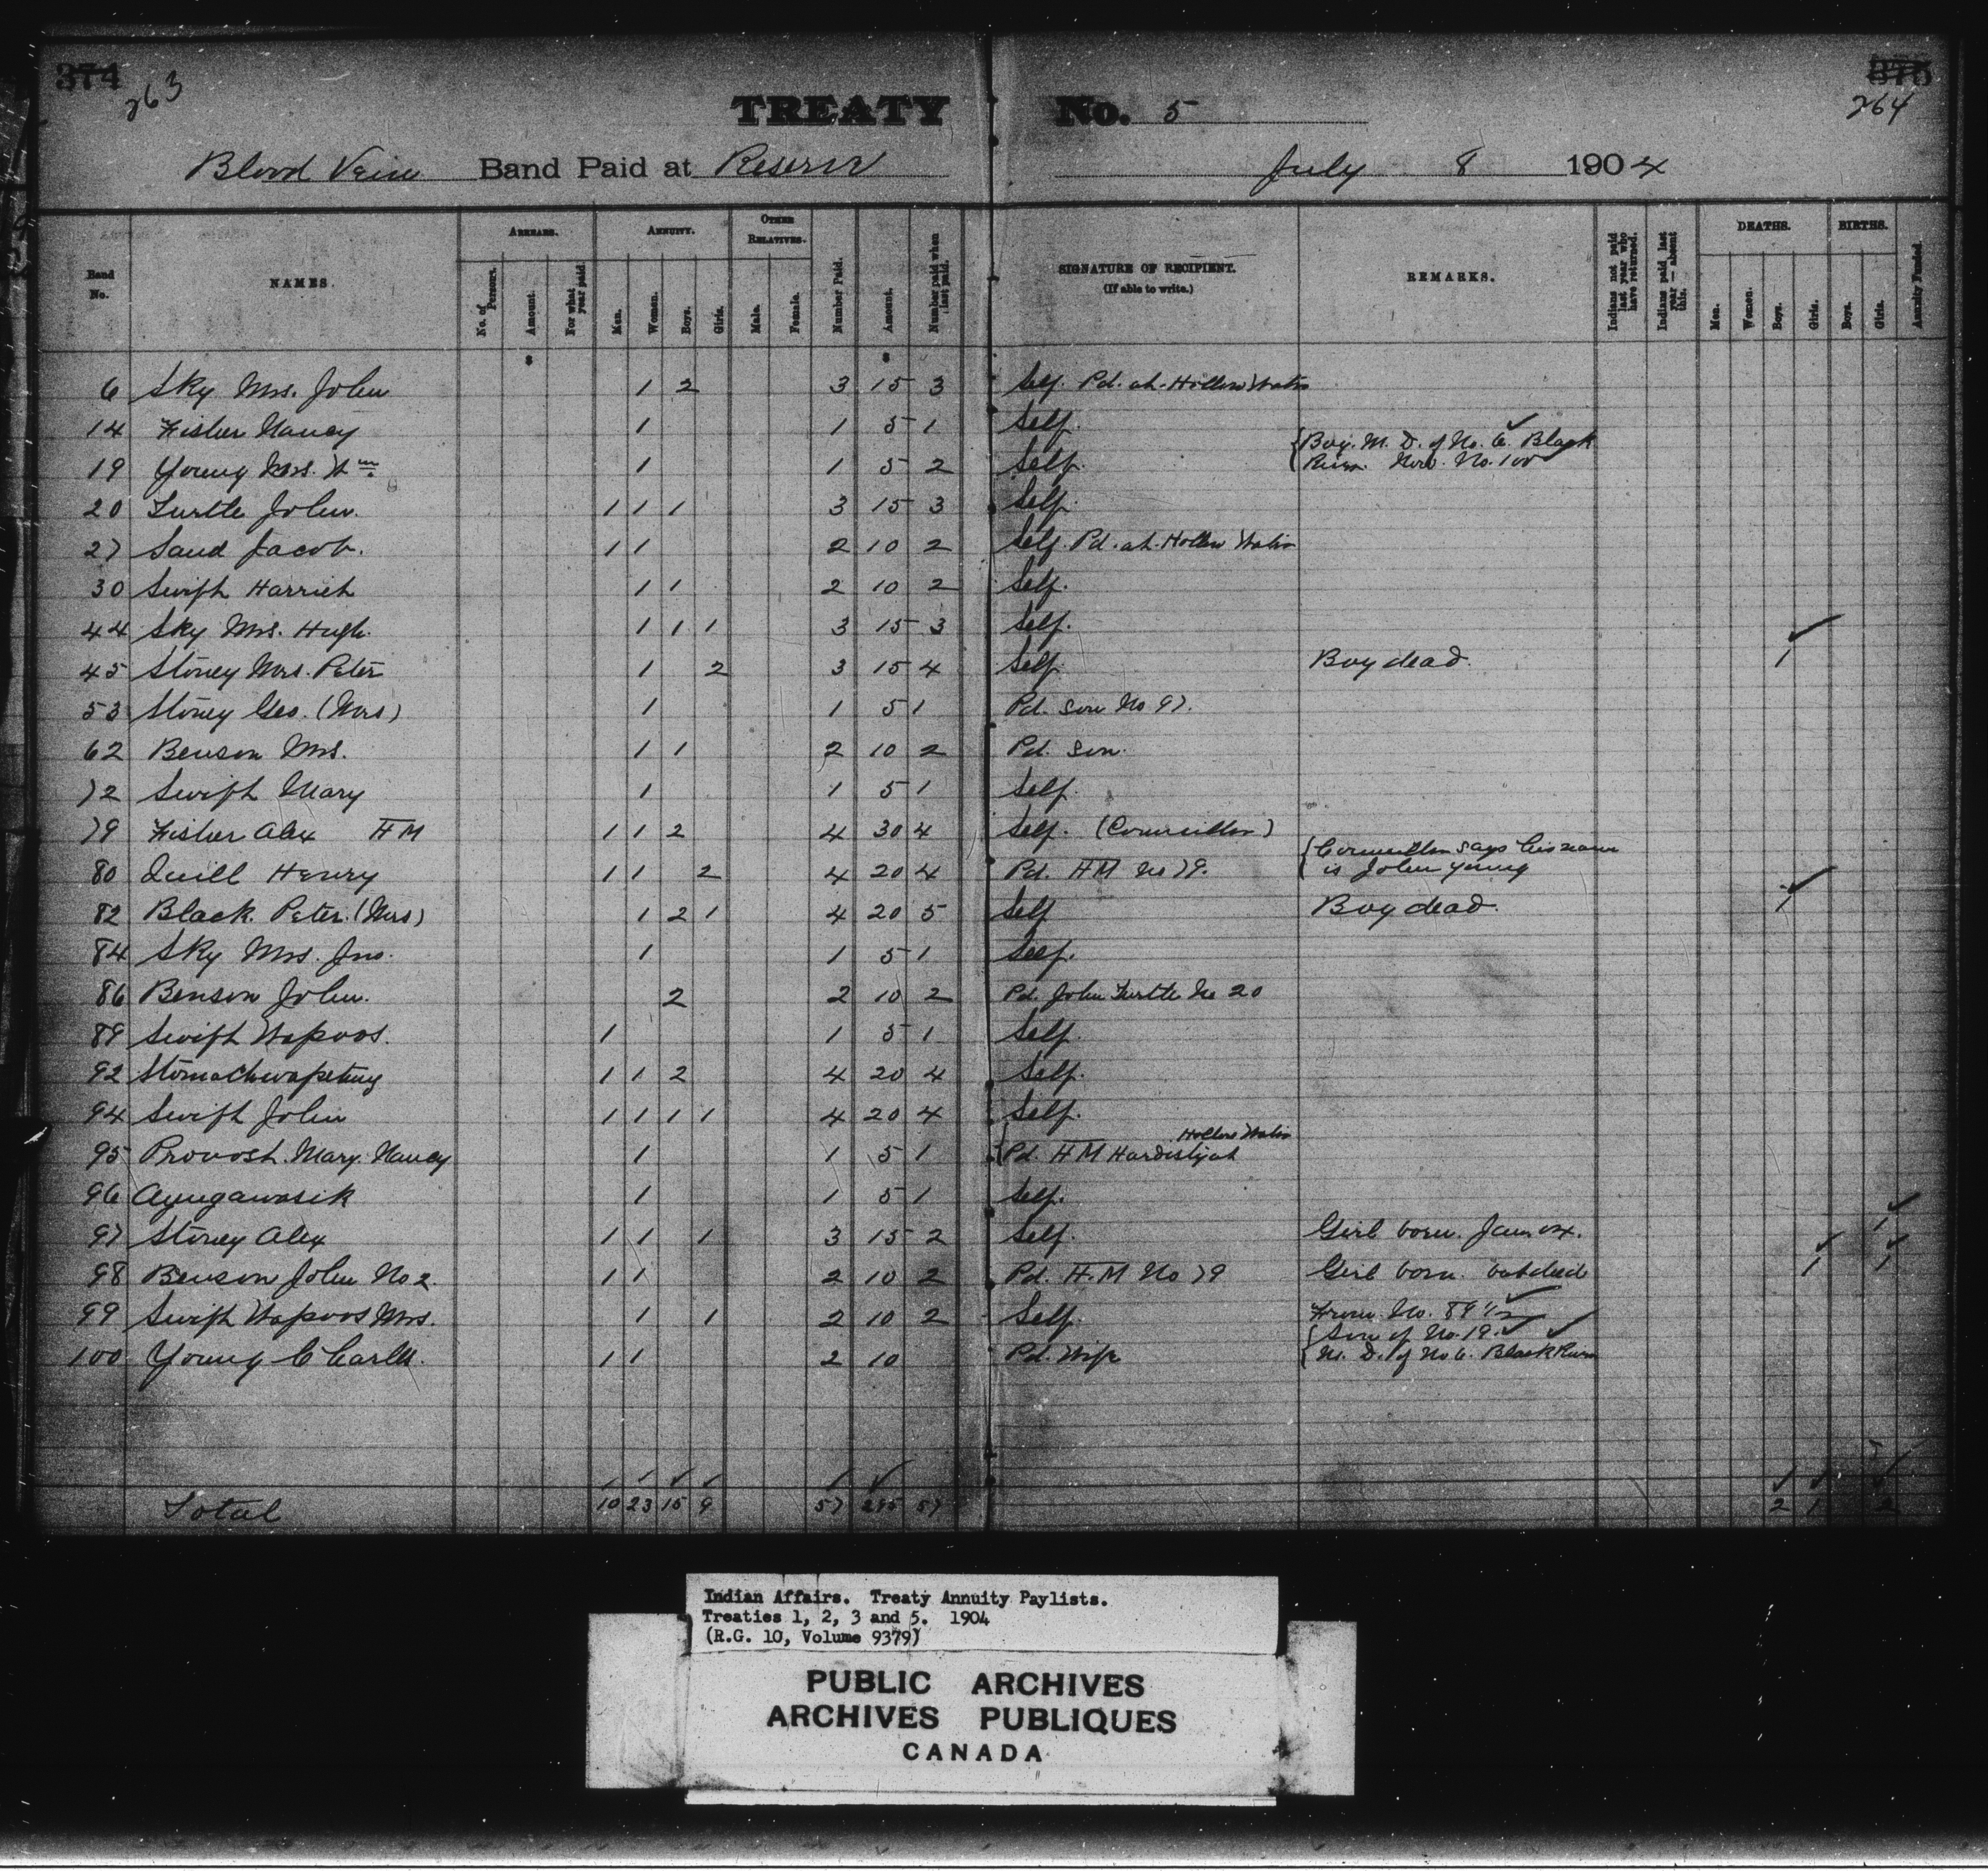 374 263 375 264
TREATY No. 5
Blood Vein Band Paid at Reserve July 8 1904
Band No. NAMES. ARREARS. No. of Persons. Amount. For what year paid ANNUITY. Men. Women. Boys. Girls. OTHER RELATIVES. Male. Female. Number Paid. Amount. Number paid when last paid. SIGNATURE OF RECIPIENT. (If able to write.) REMARKS. Indians not paid last year who have returned. Indians paid last year — absent this. DEATHS. Men. Women. Boys. Girls. BIRTHS. Boys. Girls. Annuity Funded.
$ $
6 Sky Mrs. John 1 2 3 15 3 Self. Pd. at Hollow Water
14 Fisher Nancy 1 1 5 1 Self.
19 Young Mrs. Wm 1 1 5 2 Self. {Boy. M. D. of No. 6. Black
River. Now. No. 100
20 Turtle John. 1 1 1 3 15 3 Self.
27 Sand Jacob. 1 1 2 10 2 Self. Pd. at Hollow Water
30 Swift Harriet 1 1 2 10 2 Self.
44 Sky Mrs. Hugh. 1 1 1 3 15 3 Self.
45 Stoney Mrs. Peter 1 2 3 15 4 Self Boy dead. 1
53 Stoney Geo. (Mrs) 1 1 5 1 Pd. son No 97.
62 Benson Mrs. 1 1 2 10 2 Pd. son.
72 Swift Mary 1 1 5 1 Self.
79 Fisher Alex HM 1 1 2 4 30 4 Self. (Councillor)
80 Quill Henry 1 1 2 4 20 4 Pd. HM No 79. {Councillor says his name
is John Young
82 Black Peter. (Mrs) 1 2 1 4 20 5 Self Boy dead. 1
84 Sky Mrs. Jno. 1 1 5 1 Self.
86 Benson John. 2 2 10 2 Pd. John Turtle No 20
89 Swift Wapoos. 1 1 5 1 Self.
92 Stomachwapetung 1 1 2 4 20 4 Self.
94 Swift John 1 1 1 1 4 20 4 Self.
95 Provost. Mary. Nancy 1 1 5 1 {Pd. HM Hardisty at Hollow Water
96 Ayugawasik 1 1 5 1 Self.
97 Stoney Alex 1 1 1 3 15 2 Self. Girl born. Jan. 04. 1
98 Benson John No 2. 1 1 2 10 2 Pd. H.M No 79 Girl born. but died 1 1
99 Swift Wapoos Mrs. 1 1 2 10 2 Self. From No. 89 1/2
100 Young Charles. 1 1 2 10 Pd. Wife {Son of No. 19.
M. D. of No 6. Black River
Total 10 23 15 9 57 295 57 2 1 2
Indian Affairs. Treaty Annuity Paylists.
Treaties 1, 2, 3 and 5. 1904
(R.G. 10, Volume 9379)
PUBLIC ARCHIVES
ARCHIVES PUBLIQUES
CANADA